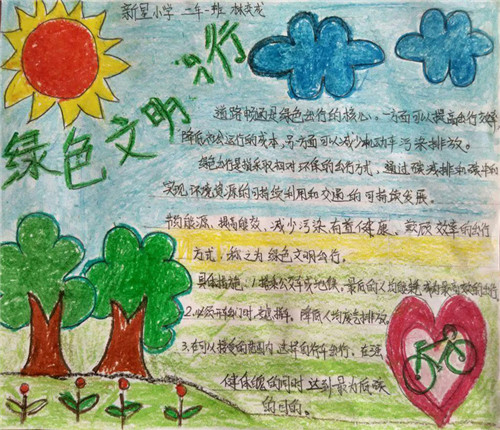 新星小学 二年一班
绿色文明出行
道路畅通是绿色出行的核心。一方面可以提高出行效率
降低 运行的成本,另方面可以减少机动车污染排放。
绿色出行是指采取相对环保的出行方式,通过碳减排和碳中和
实现环境资源的可持续利用和交通的可持续发展。
节约能源、提高能效、减少污染、有益健康、兼顾效率的出行
方式,称之为绿色文明出行。
具体措施、1.搭乘公交车或地铁,
2.必须开车出门时, 降低人均 排放
3.在可以接受的范围内选择自行车出行,在强
健体 的同时达到最为低碳
的目的。